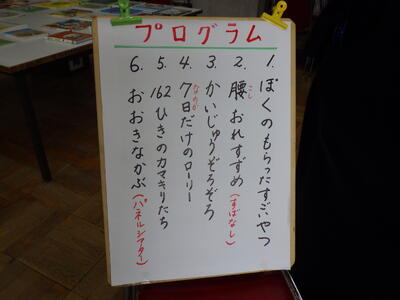 プログラム
1. ぼくのもらったすごいやつ
2. 腰おれすずめ(すばなし)
こし
3. かいじゅうぞろぞろ
4. 7日だけのローリー
なのか
5. 162ひきのカマキリたち
6. おおきなかぶ(パネルシアター)